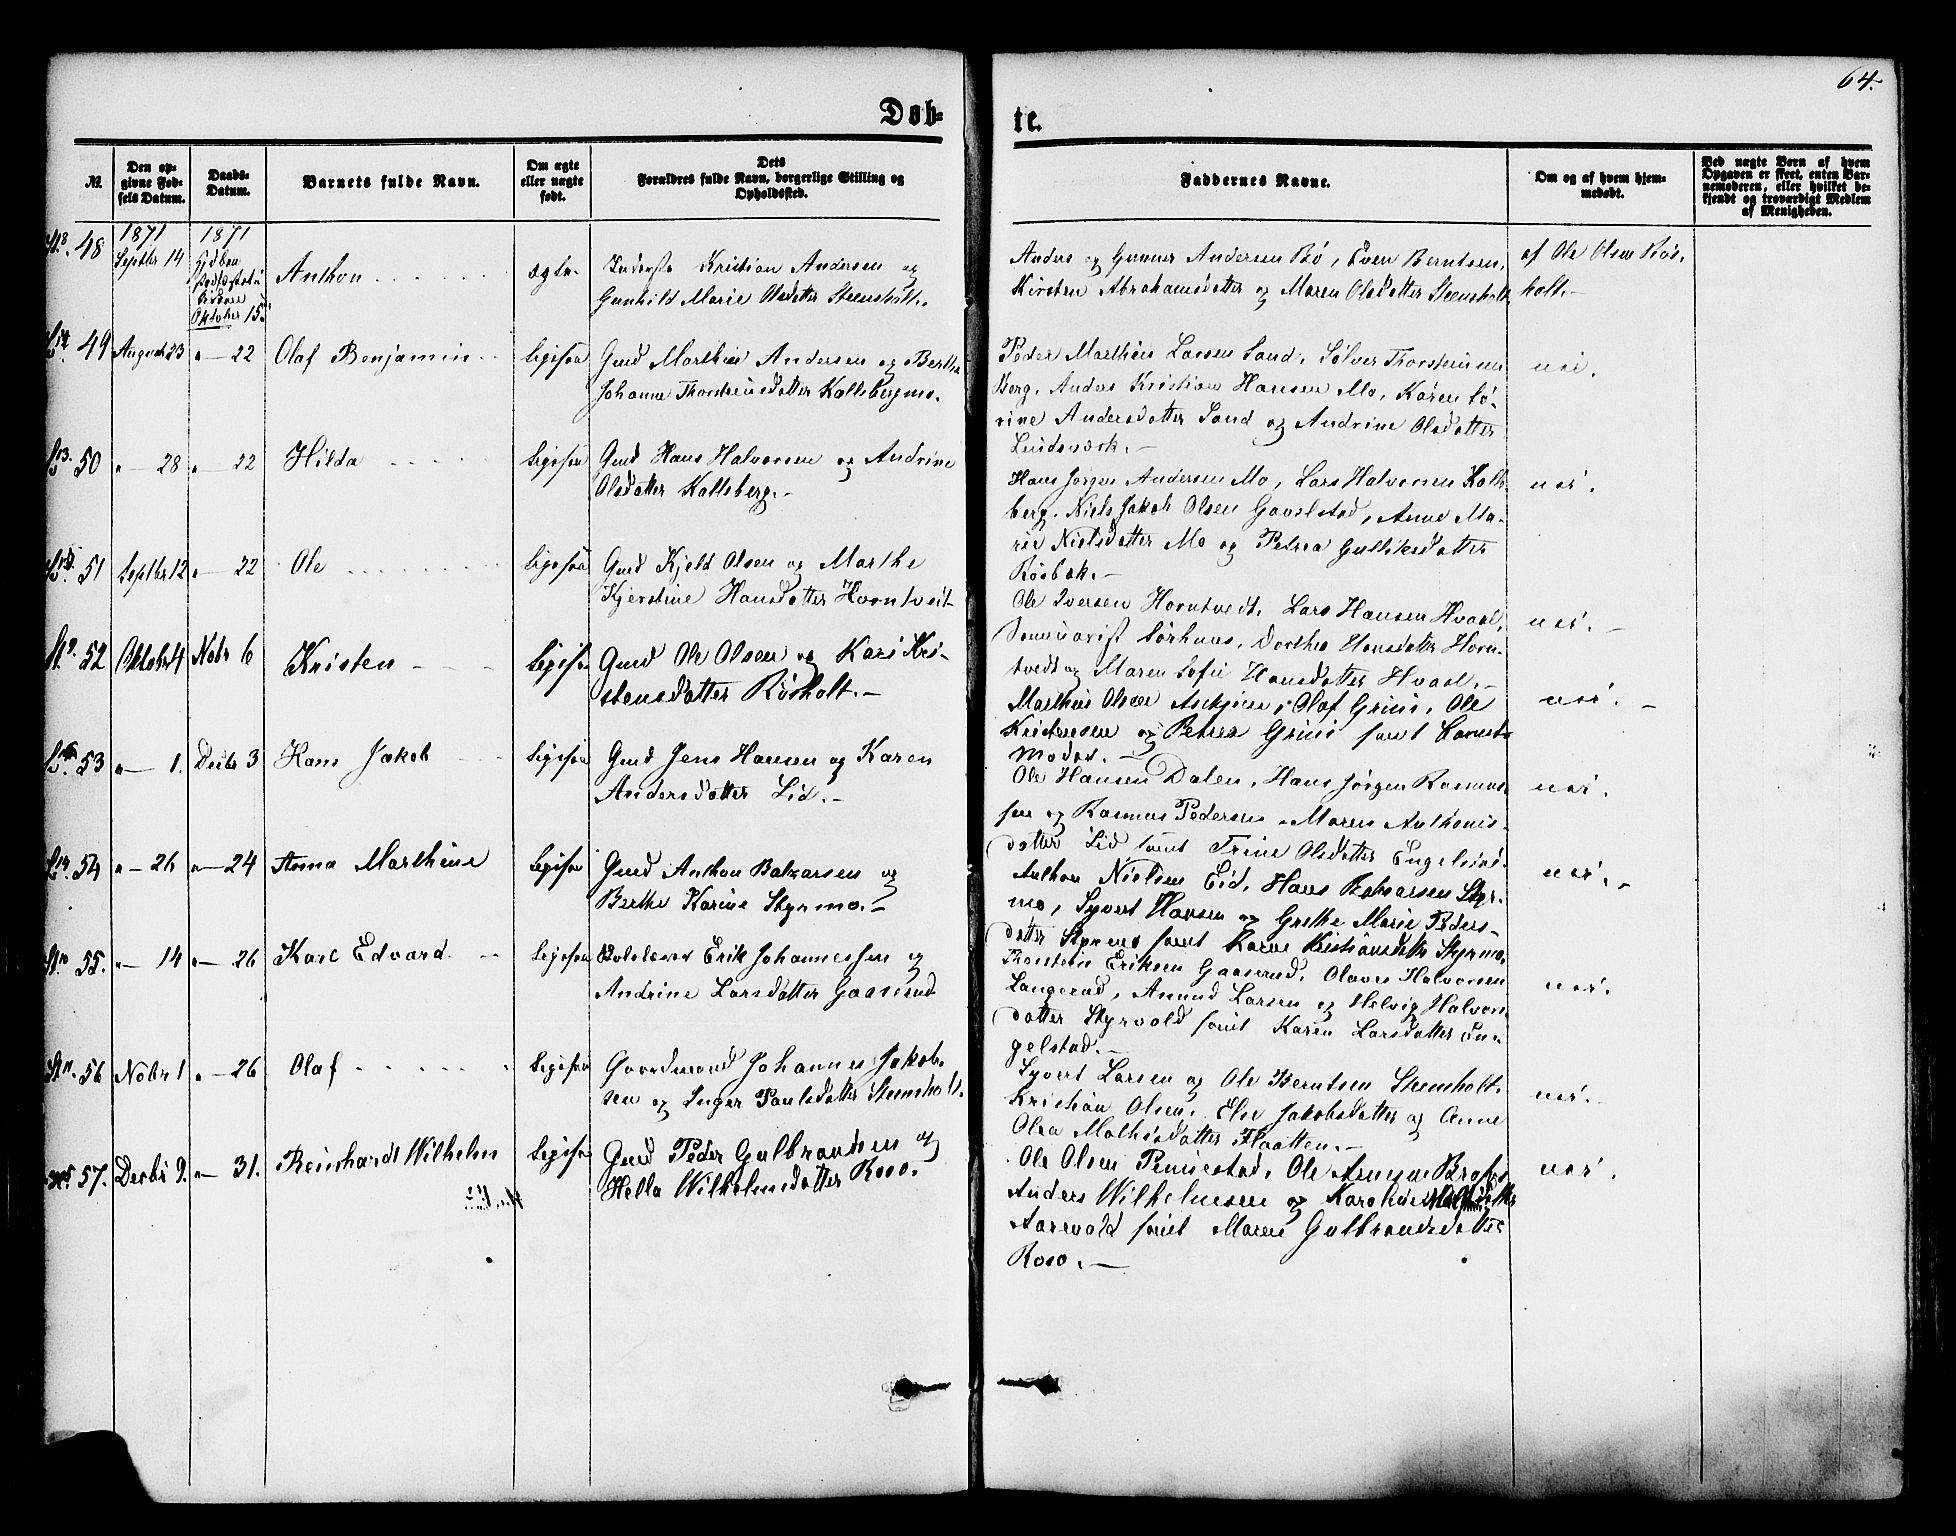 64.
Døb-
te.
№
Den op-
givne Fød-
sels Datum.
Daabs-
Datum.
Barnets fulde Navn.
Om ægte
eller uægte
født.
Dets
Forældres fulde Navn, borgerlige Stilling og
Opholdssted.
Faddernes Navne.
Om og af hvem hjem-
medøbt.
Ved uægte Børn af hvem
Opgaven er skeet, enten Bar-
nemoderen, eller hvilket be-
kjendt og troværdigt Medlem
af Menigheden.
48
1871
Septbr 14
1871
Oktober 15
Anthon
ægte
Kristian Andersen og
Gunhild Marie Olsdatter Steensholt.
Anders og Gunner Andersen Bø, Even Berntsen,
Kirsten Abrahamsdatter og Maren Olsdatter Steensholt
af Ole Olsen Rös-
holt.-
49
August 23
" - 22
Olaf Benjamin
ligesaa
Gmd Marthin Andersen og Berthe
Johanne Thorsteinsdatter Kallsbergmo.
Peder Marthin Larsen Sand, Sölver Thorsteinsen
Berg, Anders Kristian Hansen Mo, Karen Sö-
rine Andersdatter Sand og Andrine Olsdatter
Lindsværk.-
nei.
50
" - 28
" - 22
Hilda
ligesaa
Gmd Hans Halvorsen og Andrine
Olsdatter Kallsberg.-
Hans Jörgen Andersen Mo, Lars Halvorsen Kalls-
berg, Niels Jakob Olsen Gavelstad, Anne Ma-
rie Nielsdatter Mo og Petrea Gulliksdatter
Rösbæk.-
nei.
51
Septbr 12
" - 22
Ole
ligesaa
Gmd Kjeld Olsen og Marthe
Kjerstine Hansdatter Horntvedt
Ole Iversen Horntvedt, Lars Hansen Hvaal,
Sörhaus, Dorthea Hansdatter Horn-
tvedt og Maren Sofie Hansdatter Hvaal.-
nei.-
52
Oktober 4
Nobr 6
Kristen
ligesaa
Gmd Ole Olsen og Kari Kri-
stensdatter Rösholt.-
Marthin Olsen Askjem, Olaf Grini, Ole
Kristensen og Petrea Grini samt Barnets
Moder.-
nei.-
53
" - 1.
Decbr 3
Hans Jakob
ligesaa
Gmd Jens Hansen og Karen
Andersdatter Lid.-
Ole Hansen Dalen, Hans Jörgen Rasmus-
sen og Rasmus Pedersen, Maren Anthonis-
datter Lid samt Trine Olsdatter
nei.
54
" - 26
" - 24
Anna Marthine
ligesaa
Gmd Anthon Balzarsen og
Berthe Karine Styrmo.-
Anthon Nielsen Eid, Hans Balzarsen Styr-
mo, Syvert Hansen og Grethe Marie Peders-
datter Styrmo samt Karen Kristiansdatter Styrmo.
nei.-
55.
" - 14
" - 26
Karl Edvard
ligesaa
Erik Johannessen og
Andrine Larsdatter Gaaserud
Thorstein Eriksen Gaaserud, Olaves Halvorsen
Langerud, Anund Larsen og Helvig Halvors-
datter Styrvold samt Karen Larsdatter En-
gelstad.-
nei.
56
Nobr 1
" - 26
Olaf
ligesaa
Gaardmand Johannes Jakob-
sen og Inger Paulsdatter Steensholt.
Syvert Larsen og Ole Berntsen Steensholt,
Kristian Olsen, Else Jakobsdatter og Anne
Olea Mathisdatter Flaatten.-
nei.-
57.
Decbr 9.
" - 31.
Reinhardt Wilhelm
ligesaa
Gmd Peder Gulbrandsen og
Hella Wilhelmsdatter Roso.-
Ole Olsen Pennestad, Ole
Anders Wilhelmsen og
Aarvold samt Maren Gulbrandsdatter
Roso.-
nei.